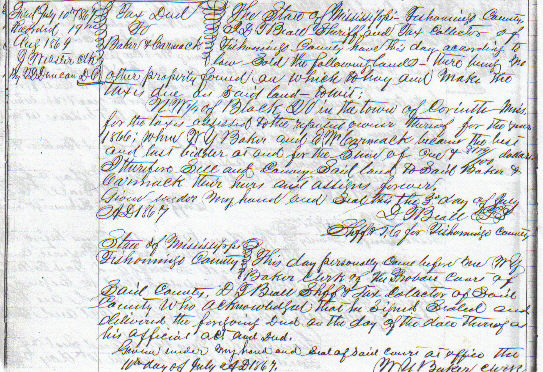 Filed July 10th 1867
Recorded, 19
Aug 1869
Clk
By Duncan D C
Tax Deed
To
Baker & Carmack
The State of Mississippi Tishomingo County
I Beall Sheriff and Tax Collector of
Tishomingo County have this day acording to
law Sold the following lands - there being no
other property found on which to levy and make the
taxes due on said land - to wit:
of Block in the town of Corinth Miss.
for the taxes assessed to the owner thereof for the year
1866; When W Y Baker and Carmack became the best
and last bidder at and for the Sum of One & dollars
I therefore Sell and Convey Said land to Said Baker &
Carmack their heirs and assigns forever.
Given under my hand and Seal this the 3d day of July
A D 1867
Beall
Shff & for Tishomingo County
State of Mississippi
Tishomingo County
This day personally came before me W Y
Baker Clerk of the Probate Court of
Said County, Beall Shff & Tax Collector of Said
County Who acknowledged that he Signed Sealed and
delivered the forgoing Deed on the day of the date thereof as
his official act and Deed.
Given under my hand and Seal of Said Court at office this
10th day of July A D 1867.
W Y Baker Clerk